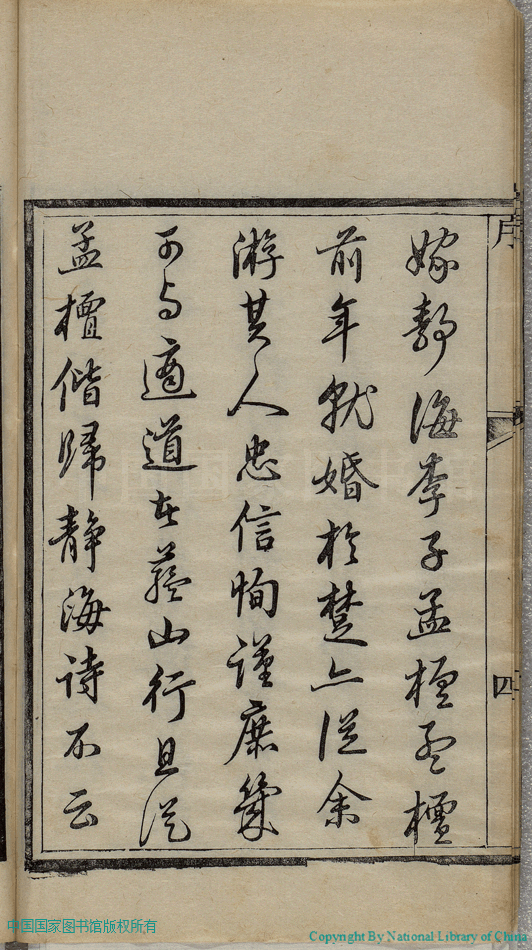 序
四
嫁靜海李子孟檀孟檀
前年就婚於楚亦從余
游其人忠信恂謹庶幾
可与適道在蘊山行且從
孟檀偕歸静海诗不云
中国国家图书馆
中国国家图书馆版权所有
Copyright By National Library of China